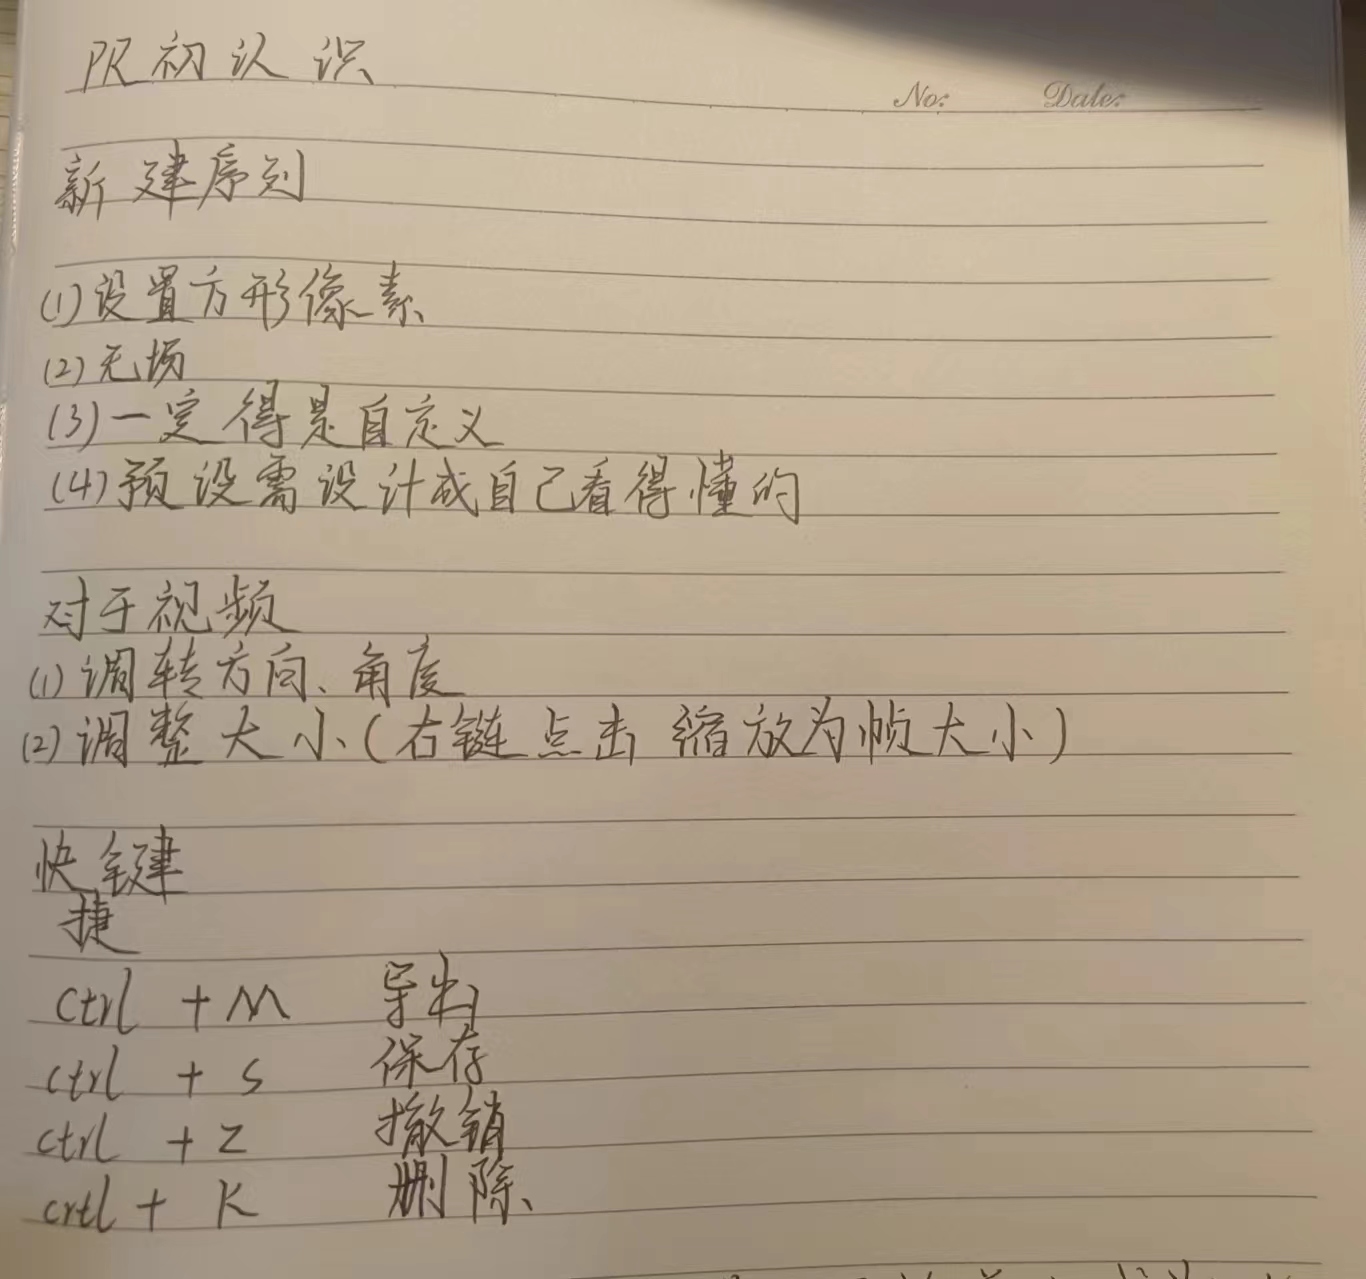 PR初认识
No: Date:
新建序列
(1)设置方形像素
(2)无场
(3)一定得是自定义
(4)预设需设计成自己看得懂的
对于视频
(1)调转方向、角度
(2)调整大小(右键点击缩放为帧大小)
快键
捷
ctrl + M 导出
ctrl + S 保存
ctrl + Z 撤销
crtl + K 删除